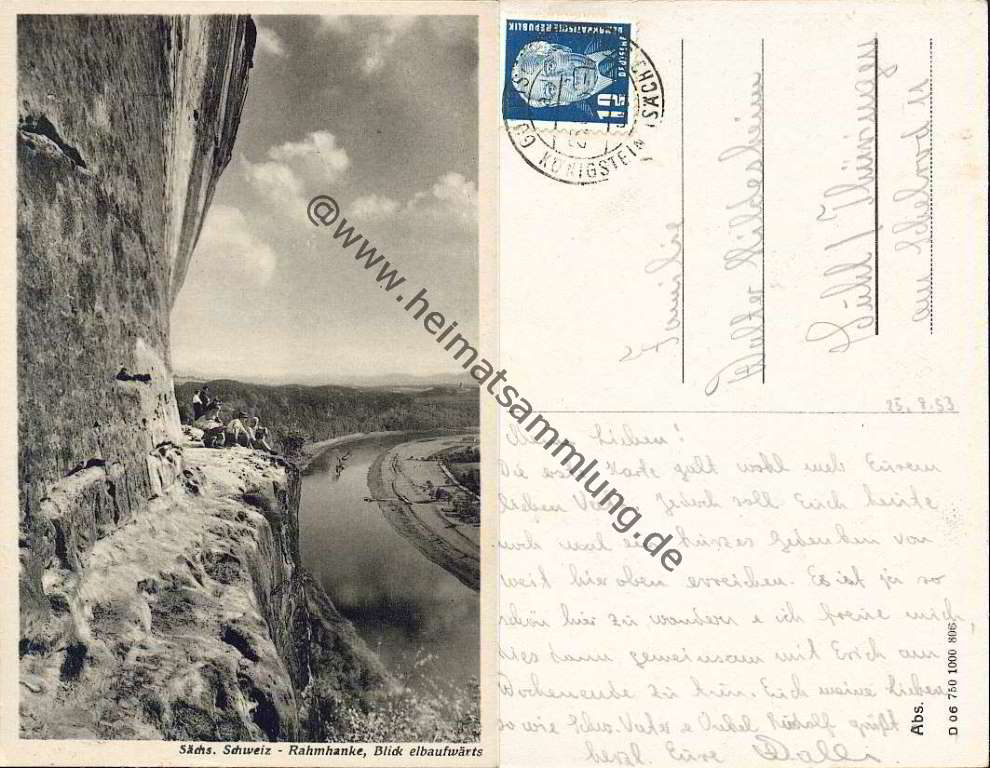 Sächs. Schweiz - Rahmhanke, Blick elbaufwärts
@www.heimatsammlung.de
DEUTSCHE
DEMOKRATISCHE REPUBLIK
12
KÖNIGSTEIN (SÄCHS
Familie
Walter Hildesheim
Suhl / Thüringen
am
25. 8. 53
Lieben!
Die Karte galt wohl mehr Eurem
lieben Jedoch soll Euch heute
noch mal ein kurzes Gedenken von
weit hier oben erreichen. Es ist ja so
schön hier zu wandern u. ich freue mich,
dies dann gemeinsam mit Erich am
Wochenende zu tun. Euch meine Lieben
so wie Schw. Vater u. Onkel Rudolf grüßt
herzl. Eure
Abs.
D 06 750 1000 806